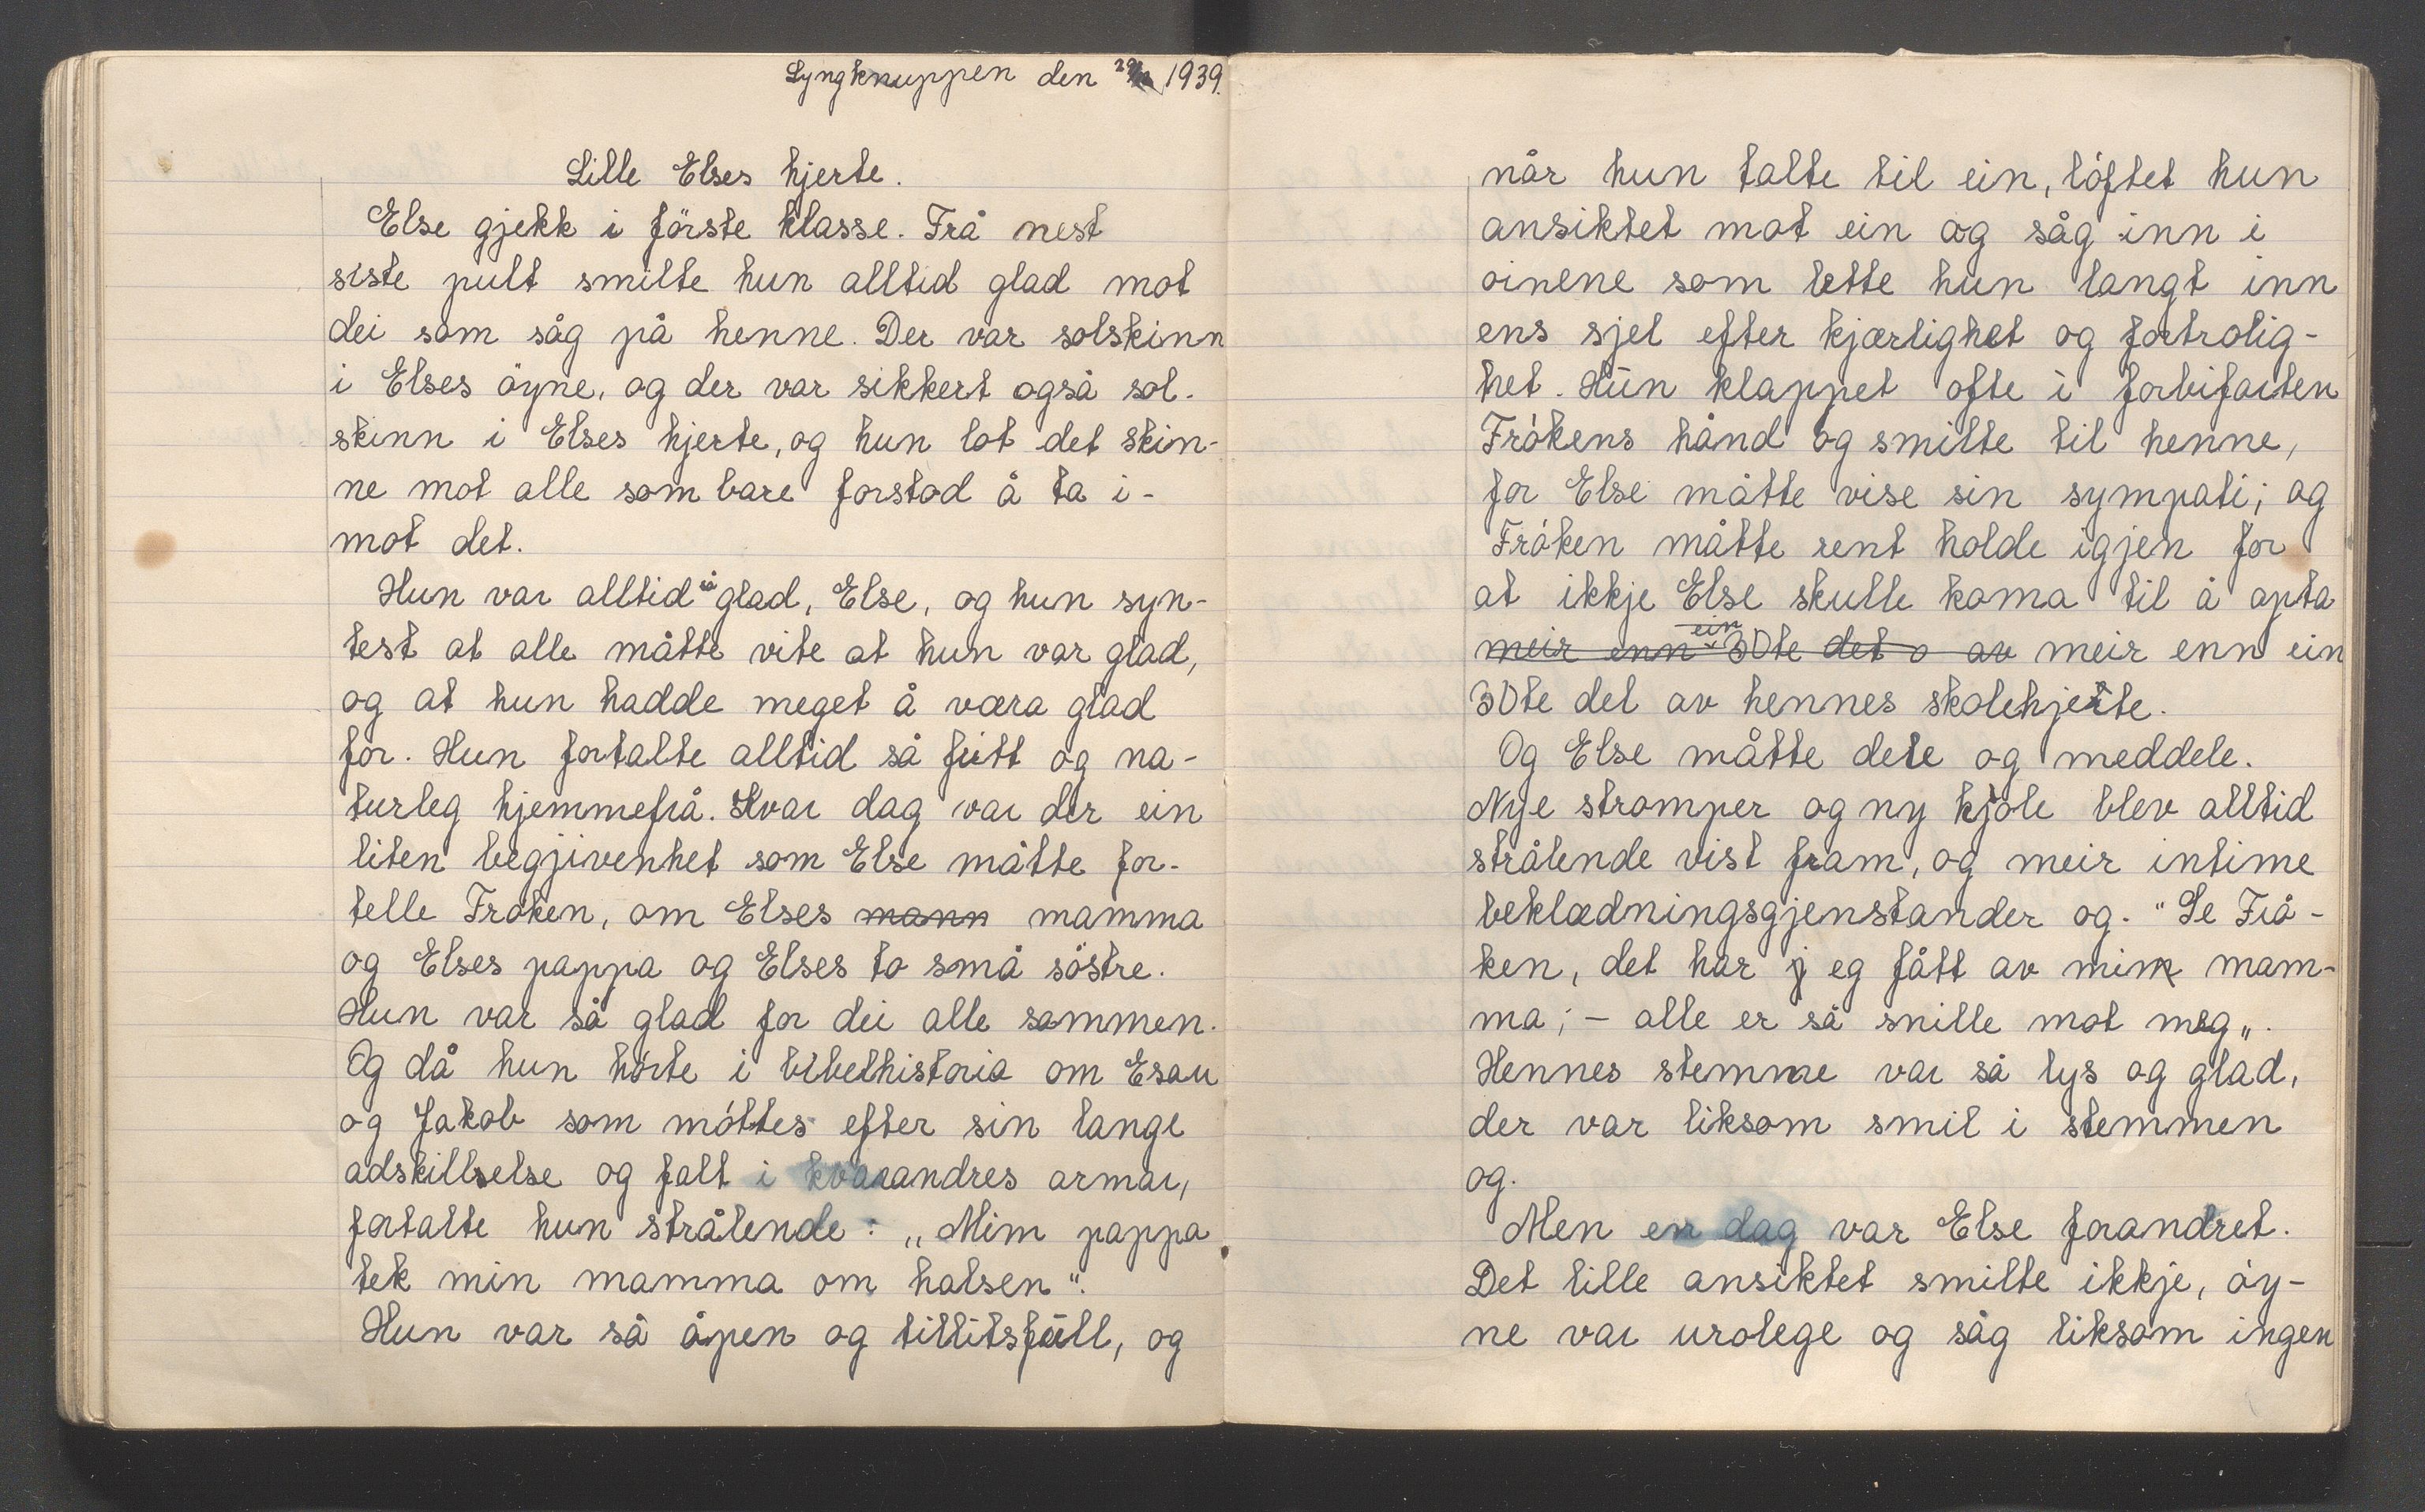 Lyngknuppen den 1939.
Lille Elses hjerte.
Else gjekk i förste klasse. Frå nest
siste pult smilte hun alltid glad mot
dei som såg på henne. Der var solskinn
i Elses öyne, og der var sikkert også sol-
skinn i Elses hjerte, og hun lot det skin-
ne mot alle som bare forstod å ta i-
mot det.
Hun var alltid så glad, Else, og hun syn-
test at alle måtte vite at hun var glad,
og at hun hadde meget å væra glad
for. Hun fortalte alltid så fritt og na-
turleg hjemmefrå. Hvar dag var der ein
liten begjivenhet som Else måtte for-
telle Froken, om Elses mann mamma
og Elses pappa og Elses to små söstre.
Hun var så glad for dei alle sammen.
Og då hun hórte i bibelhistoria om Esau
og Jakob som móttes efter sin lange
adskillselse og falt i kvarandres armar,
fortalte hun strålende: „Mim pappa
tek min mamma om halsen".
Hun var så åpen og tillitsfull, og
når hun talte til ein, lóftet hun
ansiktet mot ein og såg inn i
oinene som lette hun langt inn
ens sjel efter kjærlighet og fortrolig-
het. Hun klappet ofte i forbifarten
Frókens hånd og smilte til henne,
for Else måtte vise sin sympati; og
Fróken måtte rent holde igjen for
at ikkje Else skulle koma til å opta
meir enn ein 30te det o av meir enn ein
30te del av hennes skolehjerte.
Og Else måtte dele og meddele.
Nye stromper og ny kjole blev alltid
strålende vist fram, og meir intime
beklædningsgjenstander og. "Se Frå-
ken, det har j eg fått av min mam-
ma; - alle er så snille mot meg„.
Hennes stemme var så lys og glad,
der var liksom smil i stemmen
og.
Men en dag var Else forandret.
Det lille ansiktet smilte ikkje, óy-
ne var urolege og såg liksom ingen